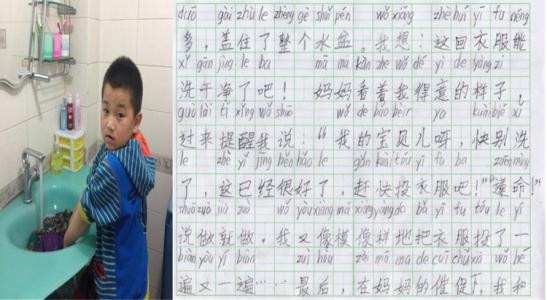 duō gài zhù le zhěng gè shuǐ pén wǒ xiǎng zhè huí yī fu néng
多，盖住了整个水盆。我想：这回衣服能
xǐ gān jìng le ba mā ma kàn zhe wǒ dé yì de yàng zi
洗干净了吧！ 妈妈看着我得意的样子，
guò lái tí xǐng wǒ shuō wǒ de bǎo bèir ya kuài bié xǐ
过来提醒我说：“我的宝贝儿呀，快别洗
le zhè yǐ jīng hěn hǎo le gǎn kuài tóu yī fu ba zūn mìng
了，这已经很好了，赶快投衣服吧！”“遵命！”
shuō zuò jiù zuò wǒ yòu xiàng mú xiàng yàng de bǎ yī fu tóu le yī
说做就做。我又像模像样地把衣服投了一
biàn yòu yī biàn zuì hòu zài mā ma de cuī cù xià wǒ hé
遍又一遍……最后，在妈妈的催促下，我和